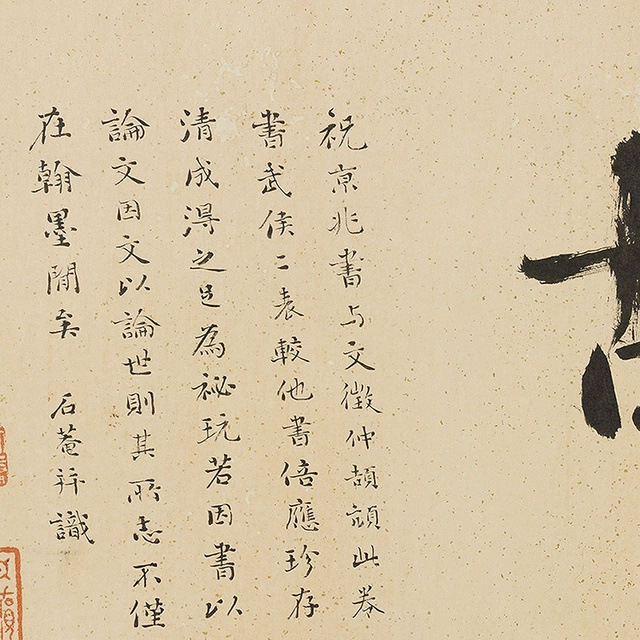 祝京兆書与文徵仲頡頏此卷
書武侯二表較他書倍應珍存
清成得之足為祕玩若因書以
論文因文以論世則其所志不僅
在翰墨間矣 石菴并識